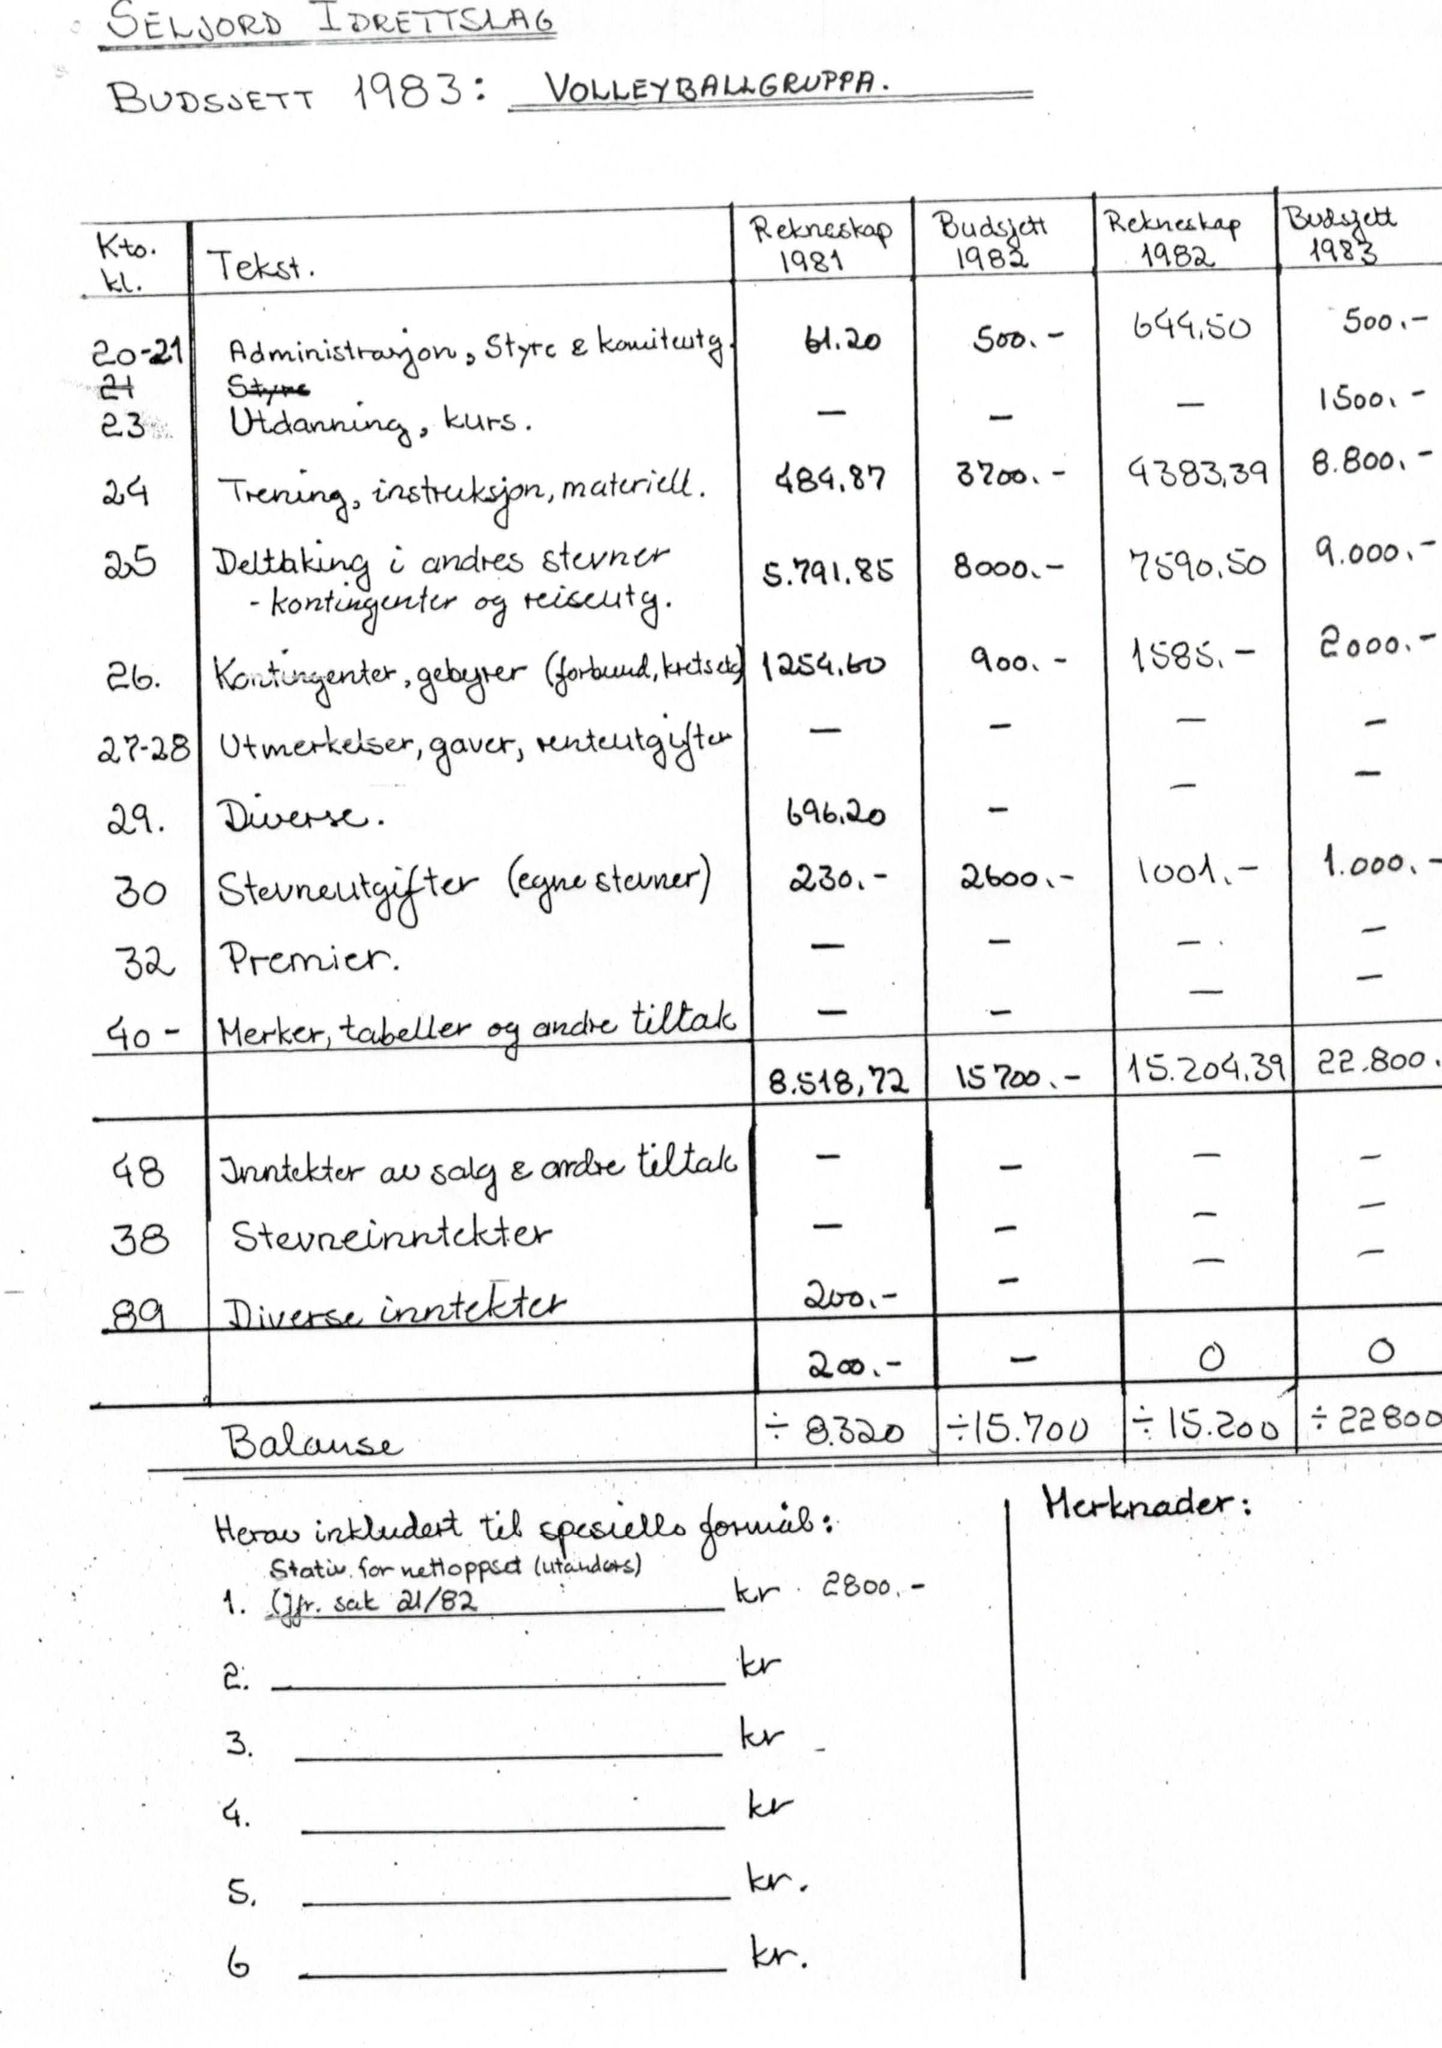 SELJORD IDRETTSLAG
BUDSJETT 1983: VOLLEYBALLGRUPPA.
Kto. kl. Tekst. Rekneskap 1981 Budsjett 1982 Rekneskap 1982 Budsjett 1983
20-21 Administrasjon, Styre & komiteutg. 61.20 500.- 644,50 500.-
21 Styre
23 Utdanning, kurs. — — — 1500.-
24 Trening, instruksjon, materiell. 484,87 3700.- 4383,39 8.800.-
25 Deltaking i andres stevner 5.791.85 8000.- 7590,50 9.000.-
- kontingenter og reiseutg.
26. Kontingenter, gebyrer (forbund, krets etc) 1254.60 900.- 1585.- 2000.-
27-28 Utmerkelser, gaver, renteutgifter — — — —
29. Diverse. 696.20 — — —
30 Stevneutgifter (egne stevner) 230.- 2600.- 1001.- 1.000.-
32 Premier. — — — —
40 - Merker, tabeller og andre tiltak — — — —
8.518,72 15700.- 15.204,39 22.800.
48 Inntekter av salg & andre tiltak — — — —
38 Stevneinntekter — — — —
89 Diverse inntekter 200.- — — —
200.- — 0 0
Balanse ÷ 8.320 ÷15.700 ÷ 15.200 ÷ 22800
Herav inkludert til spesielle formål: Merknader:
Stativ for nettoppset (utandørs)
1. (Jfr. sak 21/82 kr 2800.-
2. kr
3. kr -
4. kr
5. kr.
6 kr.